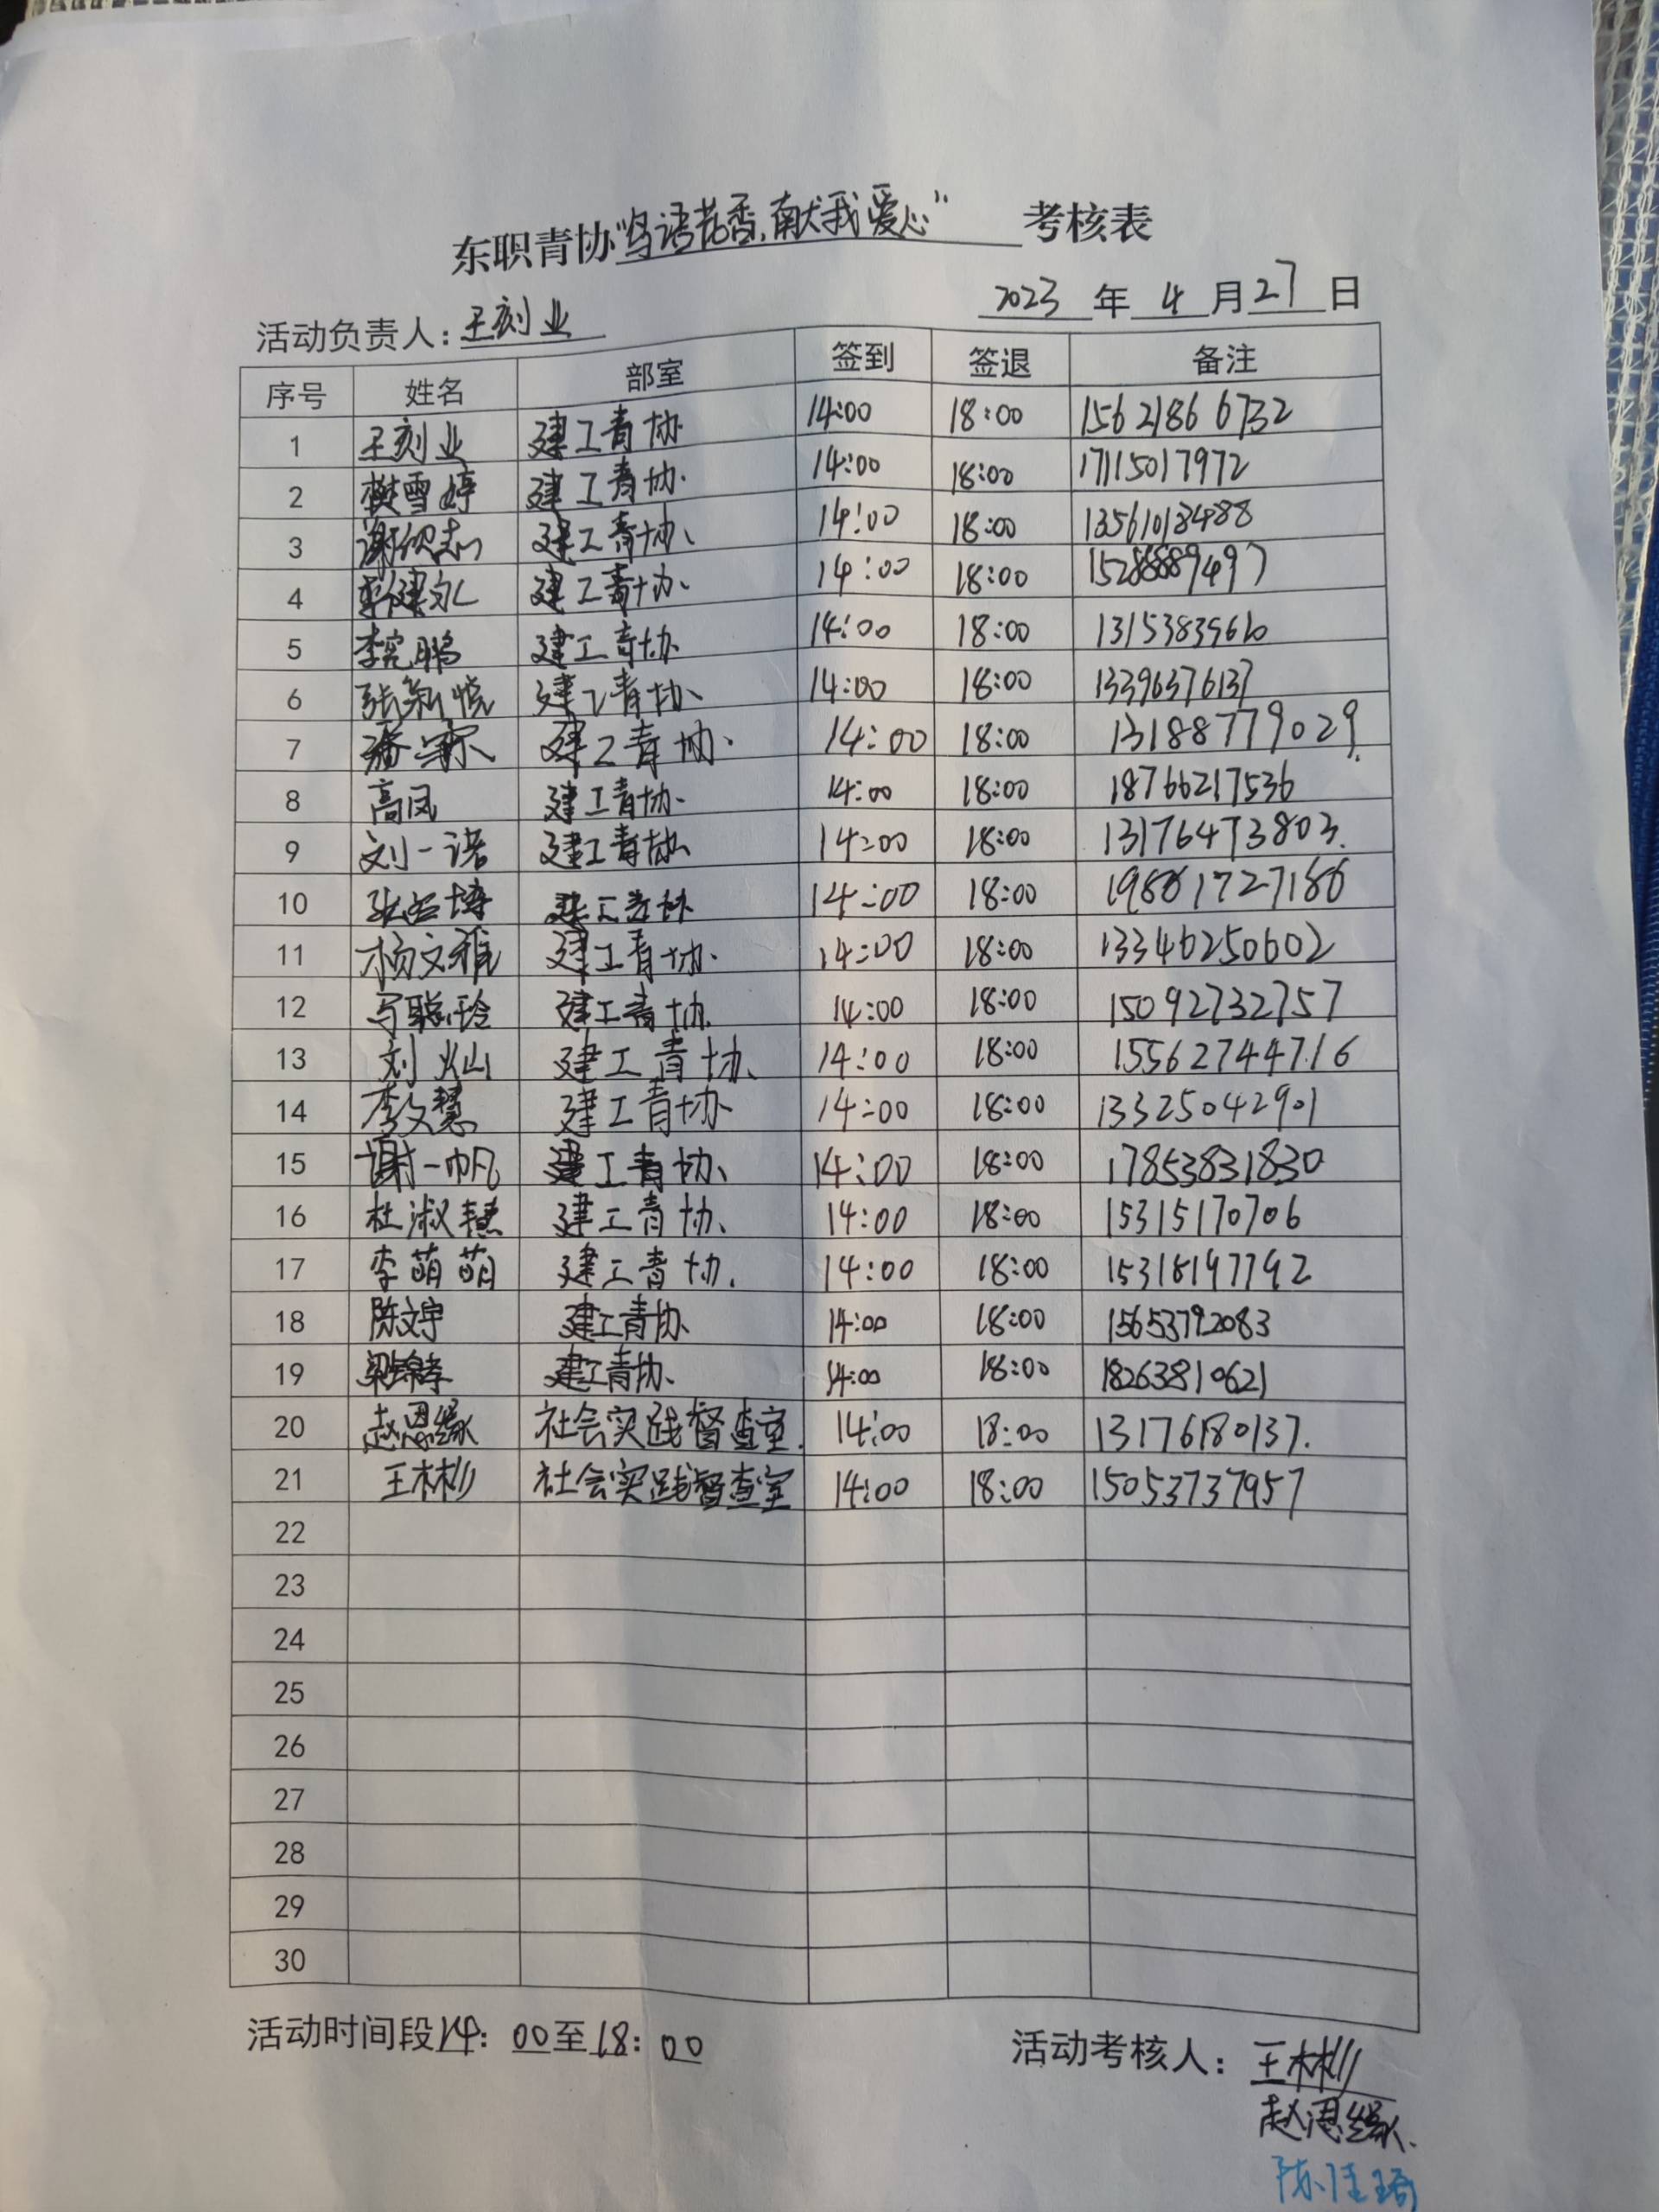 东职青协“鸟语花香,献我爱心” 考核表
活动负责人:王刻业 2023 年 4 月 27 日
序号 姓名 部室 签到 签退 备注
1 王刻业 建工青协 14:00 18:00 15621866732
2 樊雪婷 建工青协. 14:00 18:00 17115017972
3 谢欣志 建工青协、 14:00 18:00 13561013488
4 建工青协. 14:00 18:00 15288889497
5 李宪鹏 建工青协 14:00 18:00 13153835610
6 张新悦 建工青协、 14:00 18:00 13396376137
7 建工青协. 14:00 18:00 13188779029.
8 高凤 建工青协. 14:00 18:00 18766217536
9 刘一诺 建工青协 14:00 18:00 13176473803.
10 建工青协 14:00 18:00
11 杨文雅 建工青协. 14:00 18:00 13346250602
12 马聪玲 建工青协. 14:00 18:00 15092732757
13 刘灿 建工青协、 14:00 18:00 15562744716
14 李文慧 建工青协 14:00 18:00 13325042901
15 谢一帆 建工青协、 14:00 18:00 17853831830
16 杜淑慧 建工青协、 14:00 18:00 15315170706
17 李萌萌 建工青协. 14:00 18:00 15318197792
18 陈文宇 建工青协. 14:00 18:00 15653792083
19 梁锦孝 建工青协. 14:00 18:00 18263810621
20 赵恩缘 社会实践督查室. 14:00 18:00 13176180137.
21 王彬彬 社会实践督查室 14:00 18:00 15053737957
22
23
24
25
26
27
28
29
30
活动时间段14:00至18:00 活动考核人:王彬彬
赵恩缘.
陈佳琦